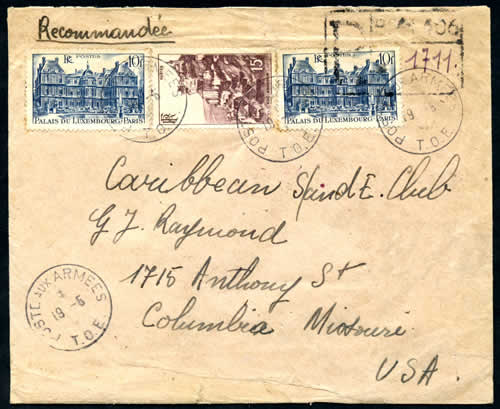 Recommandée
R
1711.
POSTES
RF
10F
PALAIS DU LUXEMBOURG-PARIS
15F
RF
POSTES
RF
10F
PALAIS DU LUXEMBOURG-PARIS
POSTE AUX ARMEES
19 -6
T.O.E.
Caribbean S and E. Club
G J. Raymond
1715 Anthony St
Columbia Missouri
USA.
POSTE AUX ARMEES
19 -6
T.O.E.